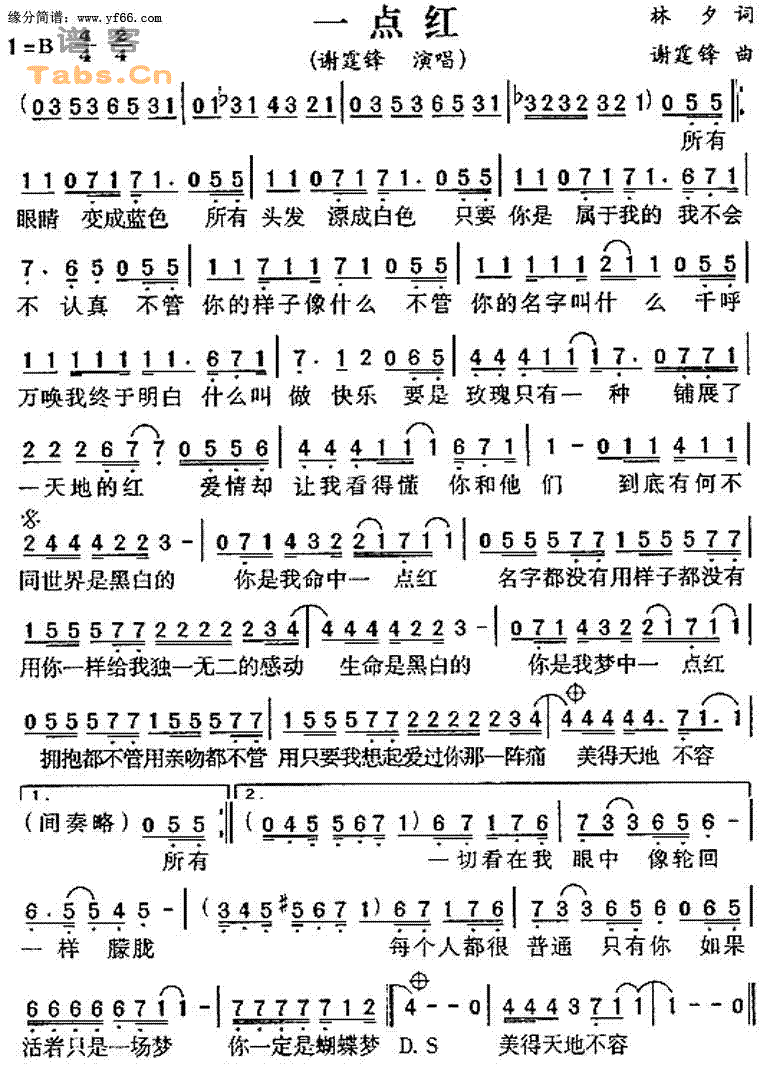 缘分简谱：www.yf66.com
一点红
林夕 词
1=B 4/4 2/4
谱客
Tabs.Cn
(谢霆锋 演唱)
谢霆锋 曲
(03536531|01♭31 4321|03536531|♭3232321) 055
所有
1107171. 055|1107171. 055|1107171. 671
眼睛 变成蓝色 所有 头发 漂成白色 只要 你是 属于我的 我不会
7. 65055|1171171055|11111211055
不 认真 不管 你的样子像什么 不管 你的名字叫什 么 千呼
1111111. 671|7. 12065|4441117. 0771
万唤我终于明白 什么叫 做 快乐 要是 玫瑰只有一 种 铺展了
2226770556|444111671|1-011411
一天地的红 爱情却 让我看得懂 你和他 们 到底有何不
2444223-|07143221711|055577155577
同世界是黑白的 你是我命中一 点红 名字都没有用样子都没有
1555772222234|4444223-|07143221711
用你一样给我独一无二的感动 生命是黑白的 你是我梦中一 点红
055577155577|1555772222234|44444. 71. 1
拥抱都不管用亲吻都不管 用只要我想起爱过你那一阵痛 美得天地 不容
1. 2.
(间奏略) 055 :|| (0455671) 67176|733656-|
所有 一切看在我 眼中 像轮回
6. 5545-|(345♯5671) 67176|733656065
一样 朦胧 每个人都很 普通 只有你 如果
66666711-|77777712|4--0|4443711|1--0||
活着只是一场梦 你一定是蝴蝶梦 D.S 美得天地不容